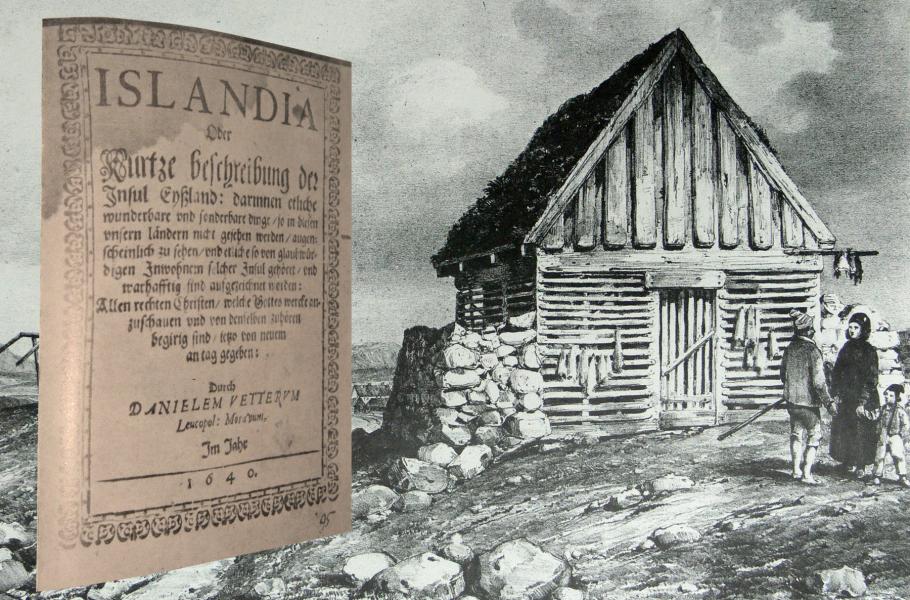 ISLANDIA
Oder
Kurtze beschreibung der
Insul Eyßland: darinnen etliche
wunderbare vnd sonderbare dinge / so in diesen
vnsern ländern nicht gesehen werden / augen⸗
scheinlich zu sehen / vnd etliche so von glaubwür⸗
digen Inwohnern solcher Insul gehöret / vnd
warhafftig sind auffgezeichnet worden:
Allen rechten Christen / welche Gottes wercke an⸗
zuschauen vnd von denselben zuhören
begirig sind / jetzo von neuem
an tag gegeben:
Durch
DANIELEM VETTERVM
Leucopol: Moravum,
Im Jahr
1640.
95